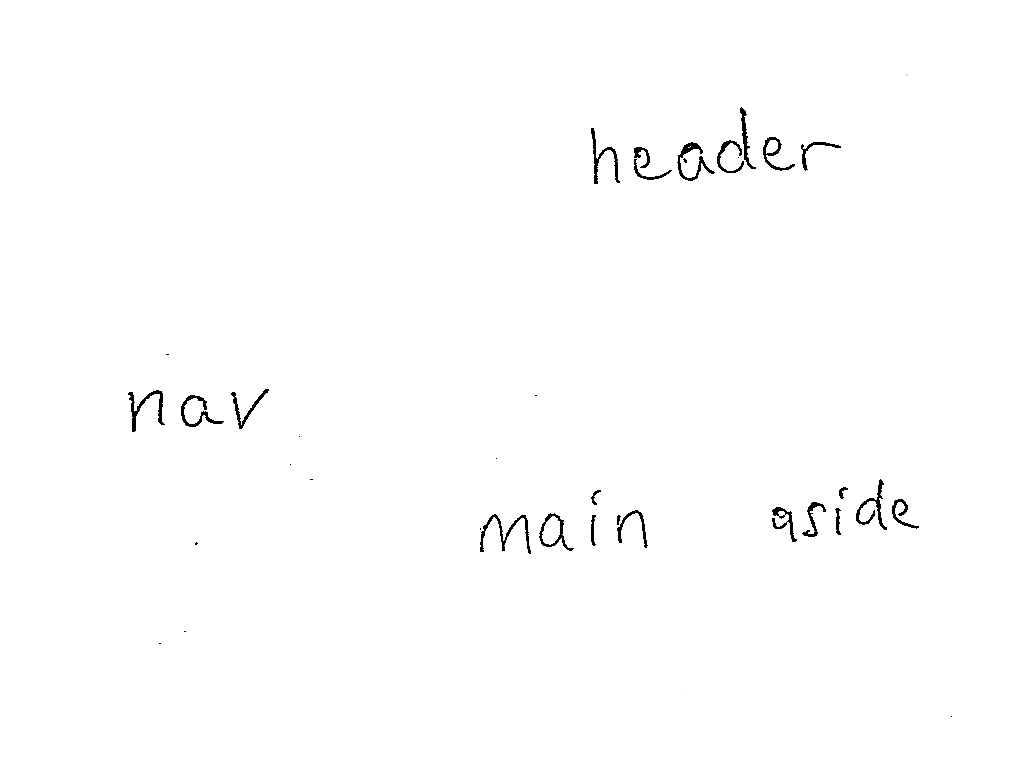 header
nav
main aside